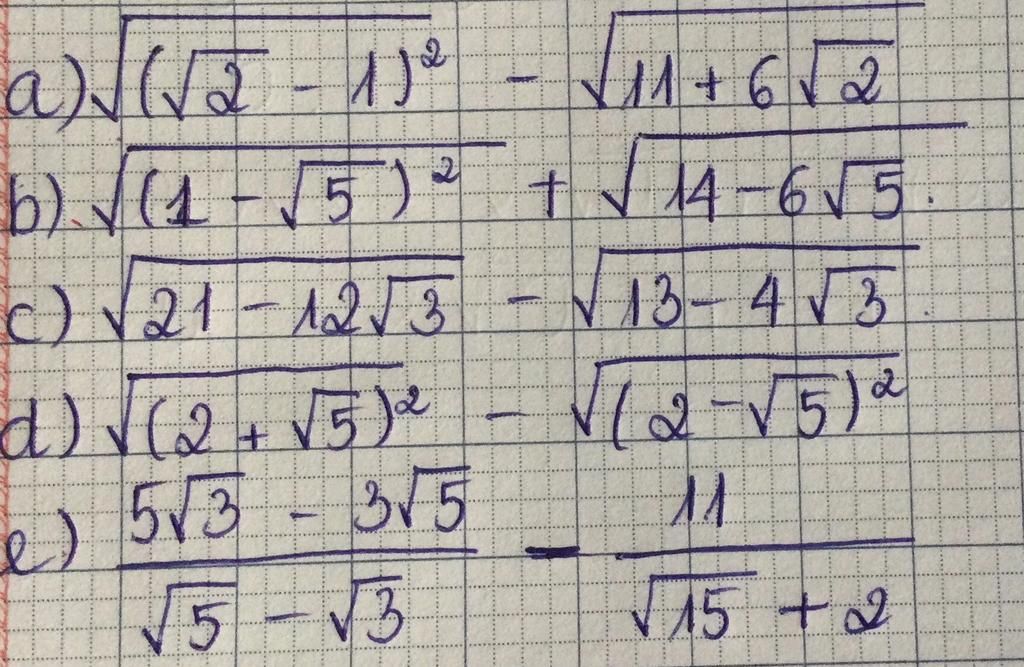 a) √((√2 - 1)²) - √(11 + 6√2)
b) √((1 - √5)²) + √(14 - 6√5).
c) √(21 - 12√3) - √(13 - 4√3).
d) √((2 + √5)²) - √((2 - √5)²)
e) (5√3 - 3√5)/(√5 - √3) - 11/(√15 + 2)